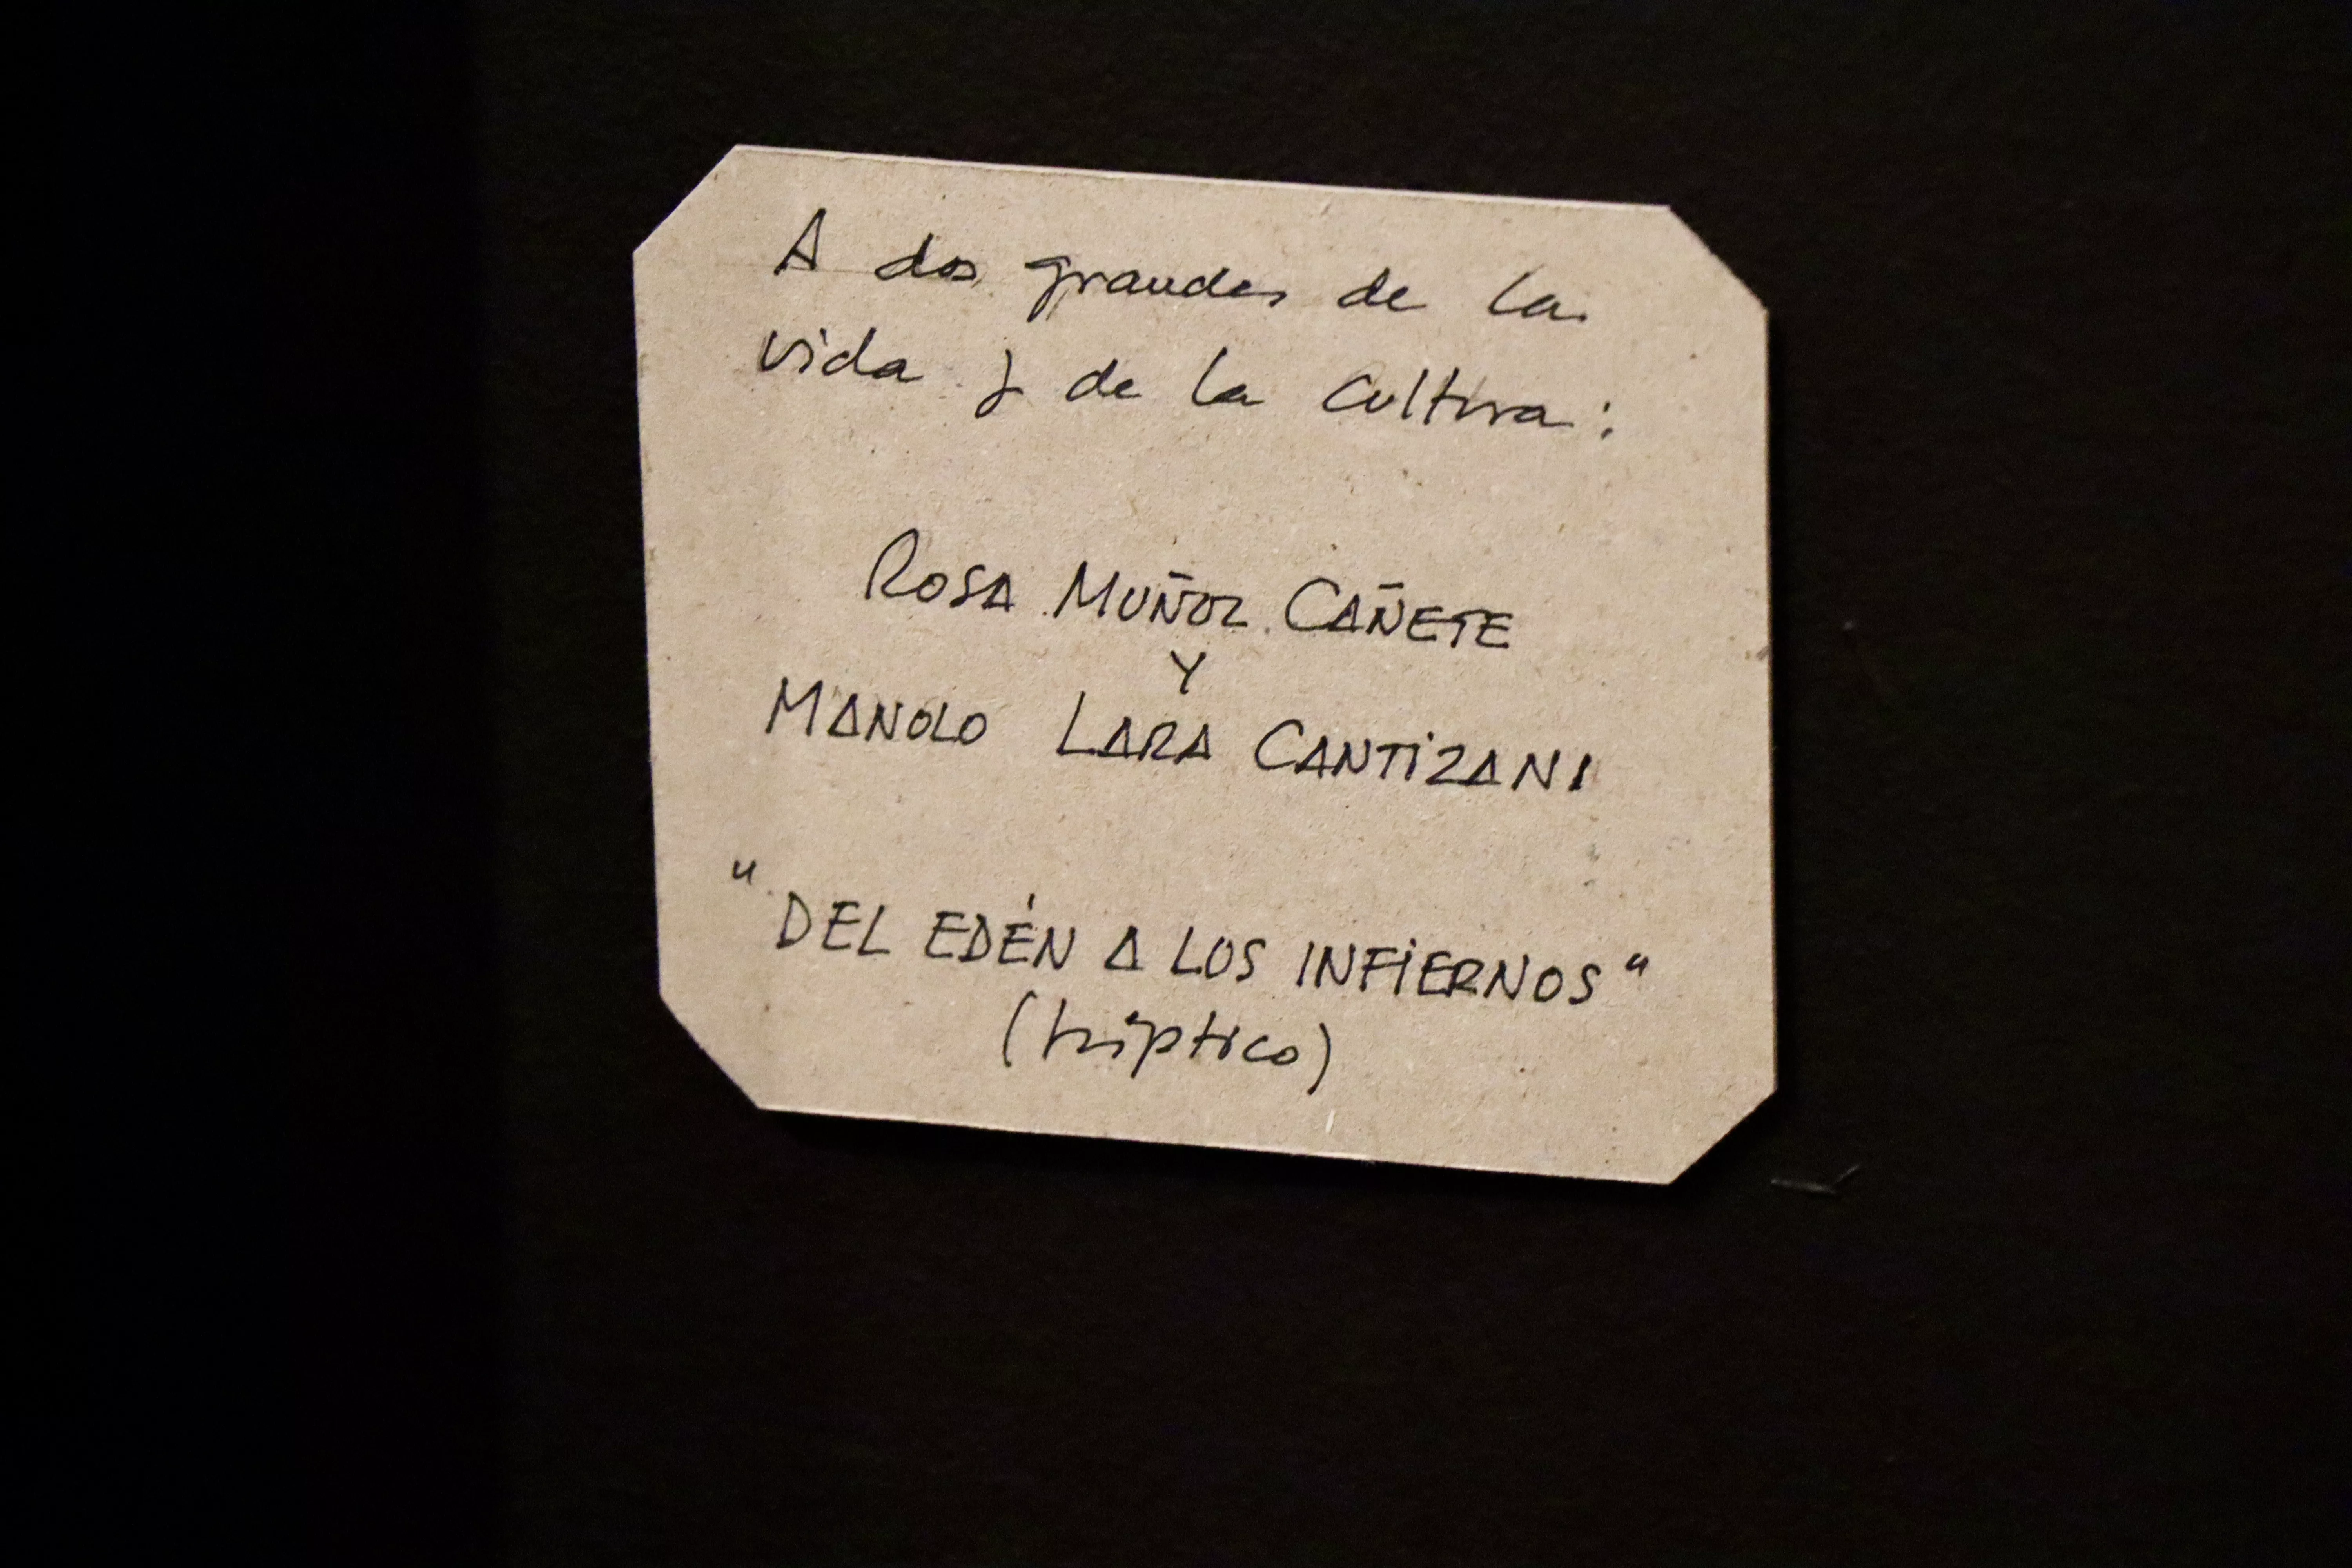 A dos grandes de la
vida y de la cultura:
ROSA MUÑOZ CAÑETE
Y
MANOLO LARA CANTIZANI
"DEL EDÉN A LOS INFIERNOS"
(tríptico)